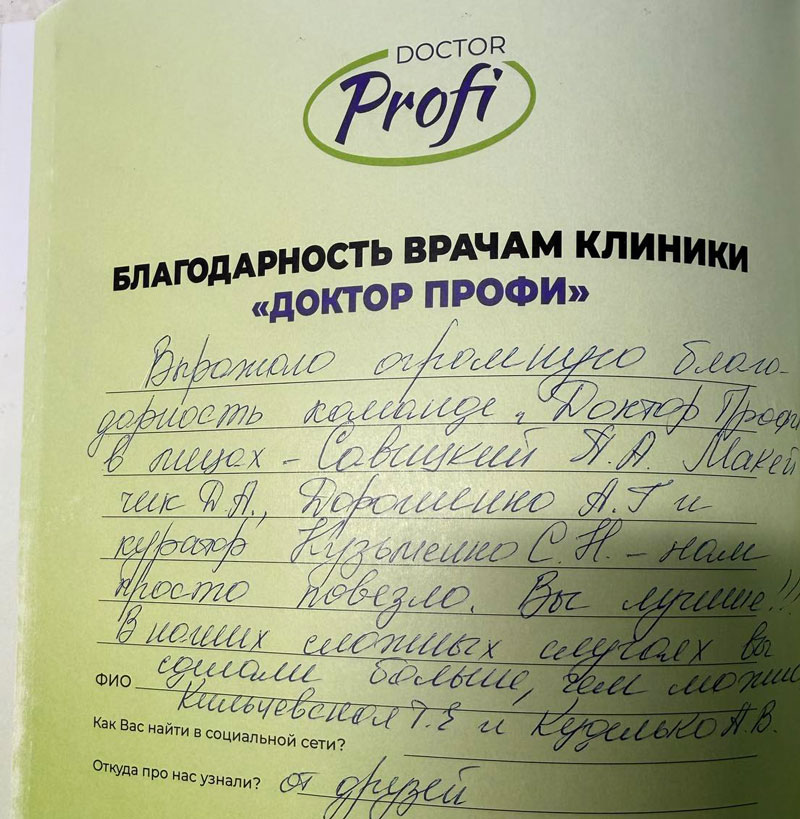 DOCTOR
Profi
БЛАГОДАРНОСТЬ ВРАЧАМ КЛИНИКИ
«ДОКТОР ПРОФИ»
Выражаю огромную благо-
дарность команде „Доктор Профи
в лицах – Савицкий А.А. Макей
чик Д.А., Дорошенко А.Г и
куратор Кузьменко С.Н. – нам
просто повезло. Вы лучшие!!!
В наших сложных случаях вы
сделали больше, чем можно
ФИО Кильчевская Т.Е и Куделько А.В.
Как Вас найти в социальной сети?
Откуда про нас узнали? от друзей